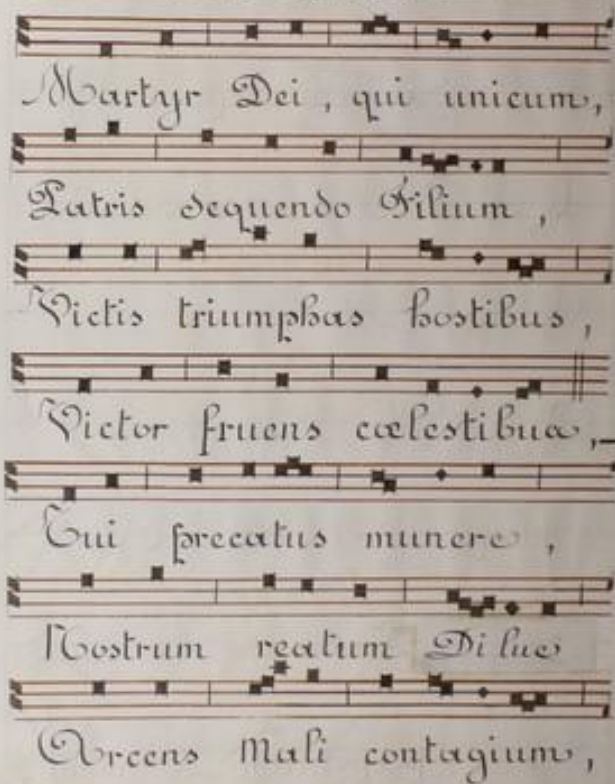 Martyr Dei, qui unicum,
Patris sequendo Filium,
Victis triumphas hostibus,
Victor fruens cœlestibus,
Tui precatus munere,
Nostrum reatum Dilue
Arcens Mali contagium,